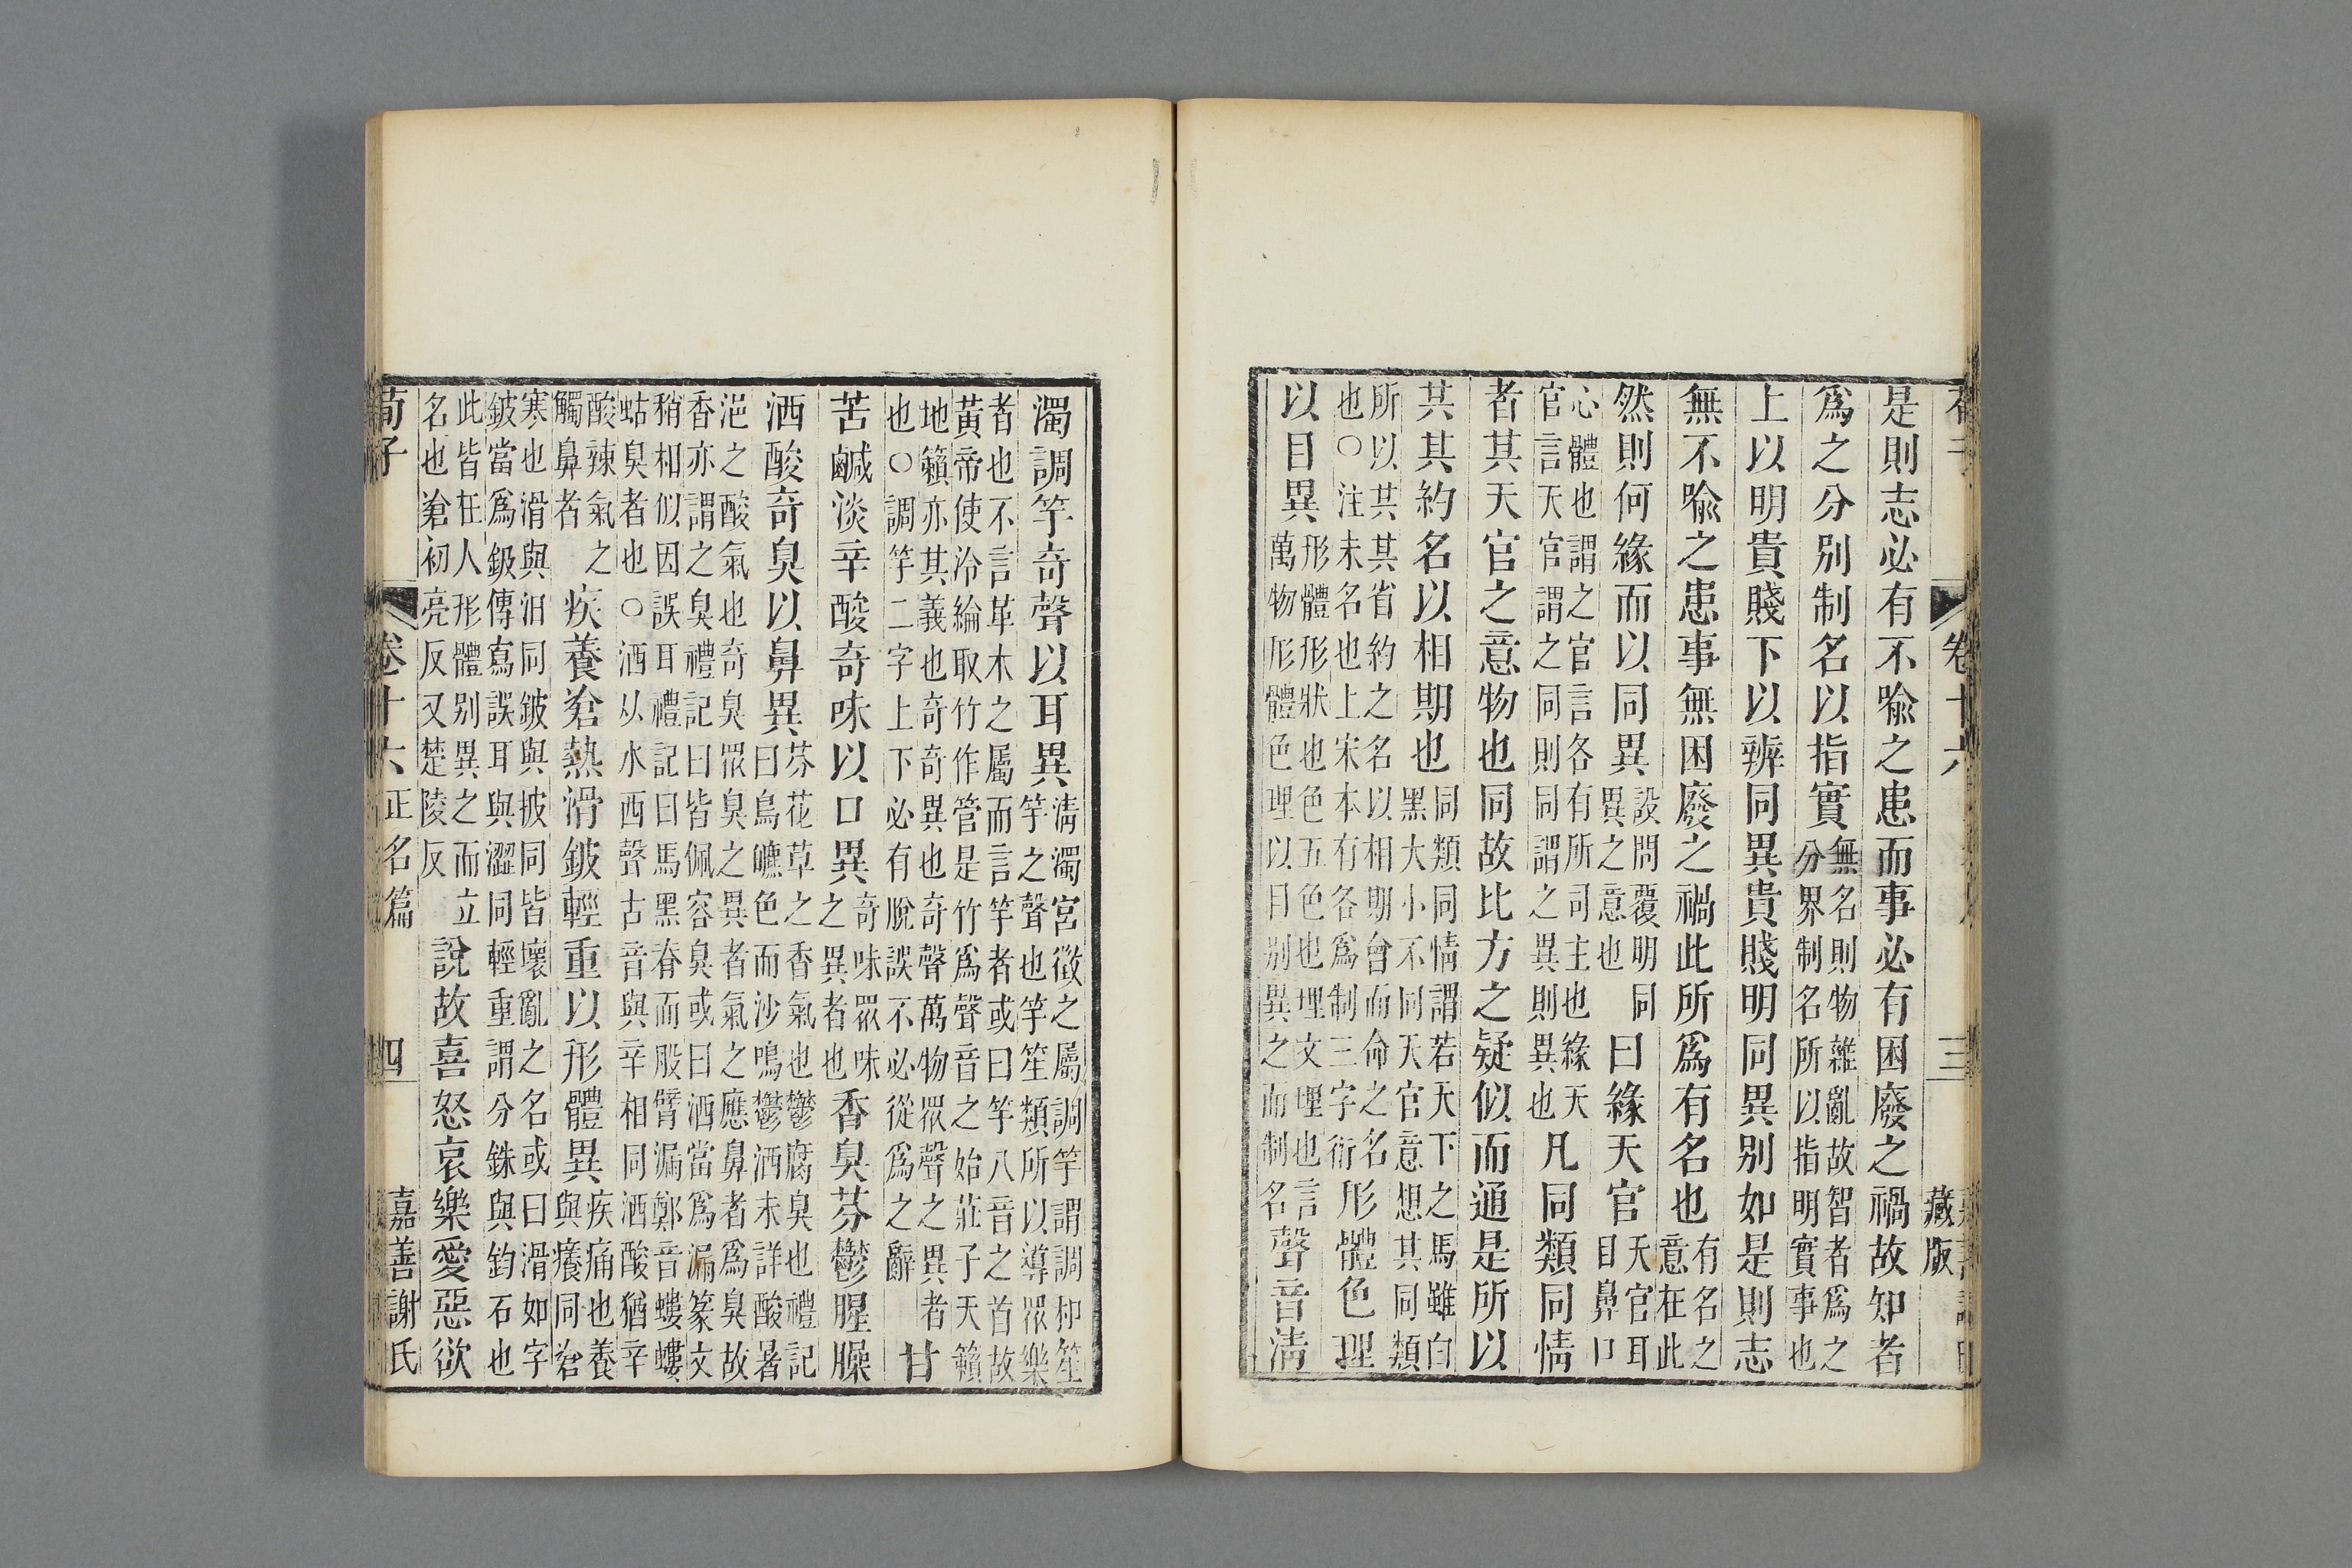 荀子 卷十六 三 藏版
是則志必有不喩之患而事必有困廢之禍故知者
爲之分別制名以指實
無名則物雜亂故智者爲之
分界制名所以指明實事也
上以明貴賤下以辨同異貴賤明同異別如是則志
無不喩之患事無困廢之禍此所爲有名也
有名之
意在此
然則何緣而以同異
設問覆明同
異之意也
曰緣天官
天官耳
目鼻口
心體也謂之官言各有所司主也緣天
官言天官謂之同則同謂之異則異也
凡同類同情
者其天官之意物也同故比方之疑似而通是所以
其其約名以相期也
同類同情謂若天下之馬雖白
黑大小不同天官意想其同類
所以其其省約之名以相期會而命之名
也○注末名也上宋本有各爲制三字衍
形體色理
以目異
形體形狀也色五色也理文理也言
萬物形體色理以目別異之而制名
聲音清
濁調竽奇聲以耳異
清濁宮徵之屬調竽謂調和笙
竽之聲也竽笙類所以導眾樂
者也不言革木之屬而言竽者或曰竽八音之首故
黃帝使泠綸取竹作管是竹爲聲音之始莊子天籟
地籟亦其義也奇奇異也奇聲萬物眾聲之異者
也○調竽二字上下必有脫誤不必從爲之辭
甘
苦鹹淡辛酸奇味以口異
奇味眾味
之異者也
香臭芬鬱腥臊
洒酸奇臭以鼻異
芬花草之香氣也鬱腐臭也禮記
曰鳥皫色而沙鳴鬱洒未詳酸暑
浥之酸氣也奇臭眾臭之異者氣之應鼻者爲臭故
香亦謂之臭禮記曰皆佩容臭或曰洒當爲漏篆文
稍相似因誤耳禮記曰馬黑脊而般臂漏鄭音螻螻
蛄臭者也○洒从水西聲古音與辛相同洒酸猶辛
酸辣氣之
觸鼻者
疾養凔熱滑鈹輕重以形體異
疾痛也養
與癢同凔
寒也滑與汩同鈹與披同皆壞亂之名或曰滑如字
鈹當爲鈒傳寫誤耳與澀同輕重謂分銖與鈞石也
此皆在人形體別異之而立
名也凔初亮反又楚陵反
說故喜怒哀樂愛惡欲
荀子 卷十六 正名篇 四 嘉善謝氏